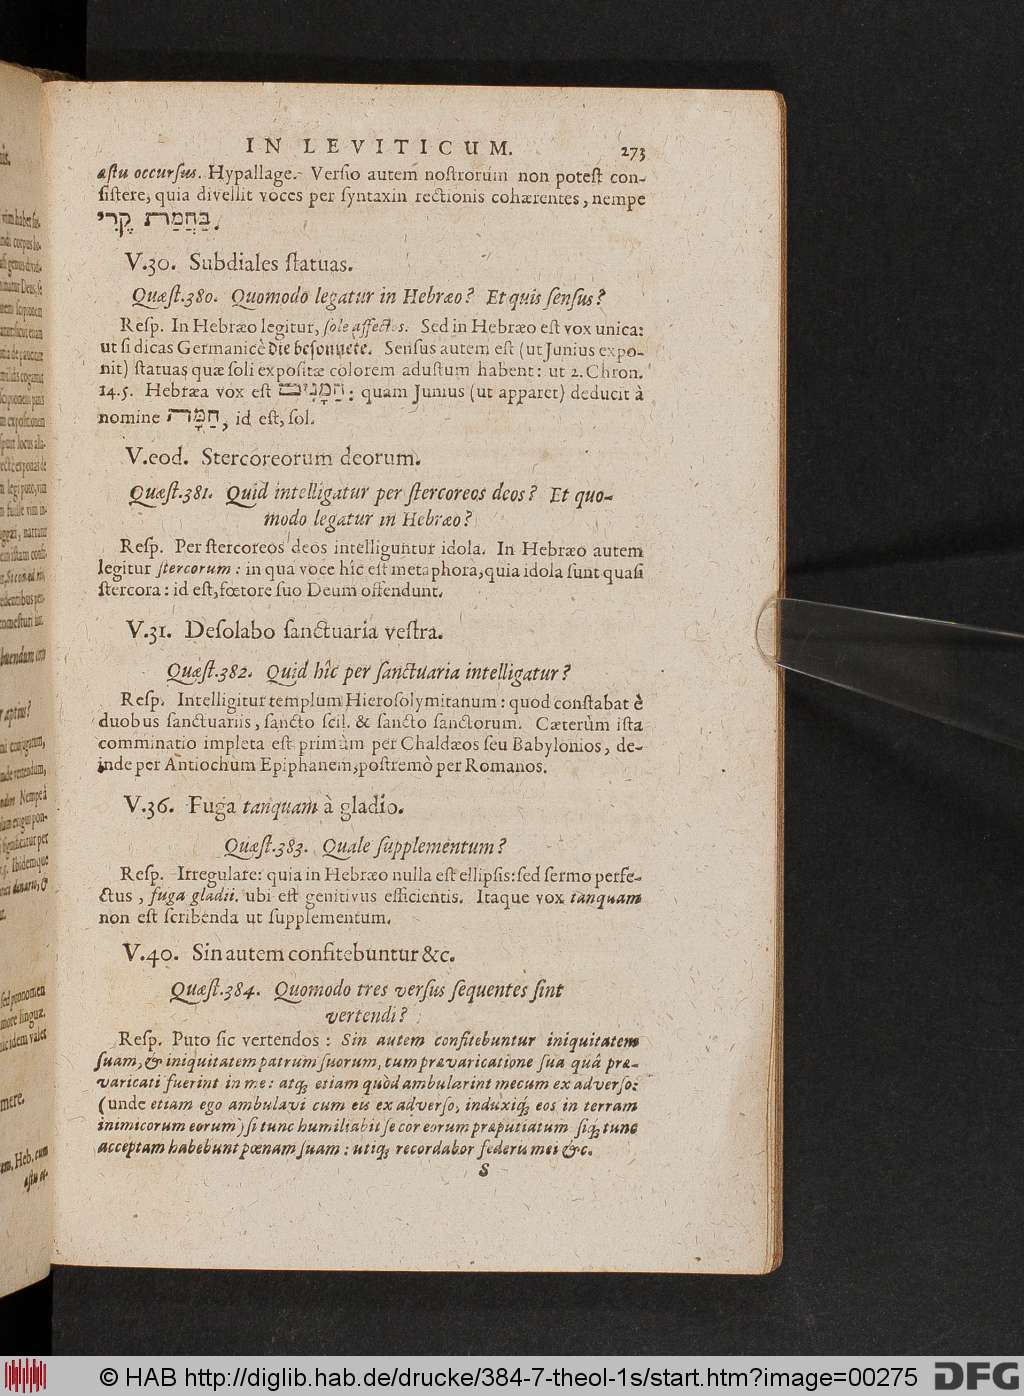 IN LEVITICUM. 273
æstu occursus. Hypallage. Versio autem nostrorum non potest con-
sistere, quia divellit voces per syntaxin rectionis cohærentes, nempe
בַּחֲמַת קֶרִי.
V.30. Subdiales statuas.
Quæst.380. Quomodo legatur in Hebræo? Et quis sensus?
Resp. In Hebræo legitur, sole affectos. Sed in Hebræo est vox unica:
ut si dicas Germanicè die besonnete. Sensus autem est (ut Junius expo-
nit) statuas quæ soli expositæ colorem adustum habent: ut 2. Chron.
14.5. Hebræa vox est חַמָּנִים: quam Junius (ut apparet) deducit à
nomine חַמָּה, id est, sol.
V.eod. Stercoreorum deorum.
Quæst.381. Quid intelligatur per stercoreos deos? Et quo-
modo legatur in Hebræo?
Resp. Per stercoreos deos intelliguntur idola. In Hebræo autem
legitur stercorum: in qua voce hîc est metaphora, quia idola sunt quasi
stercora: id est, fœtore suo Deum offendunt.
V.31. Desolabo sanctuaria vestra.
Quæst.382. Quid hîc per sanctuaria intelligatur?
Resp. Intelligitur templum Hierosolymitanum: quod constabat è
duobus sanctuariis, sancto scil. & sancto sanctorum. Cæterùm ista
comminatio impleta est primùm per Chaldæos seu Babylonios, de-
inde per Antiochum Epiphanem, postremò per Romanos.
V.36. Fuga tanquam à gladio.
Quæst.383. Quale supplementum?
Resp. Irregulare: quia in Hebræo nulla est ellipsis: sed sermo perfe-
ctus, fuga gladii. ubi est genitivus efficientis. Itaque vox tanquam
non est scribenda ut supplementum.
V.40. Sin autem confitebuntur &c.
Quæst.384. Quomodo tres versus sequentes sint
vertendi?
Resp. Puto sic vertendos: Sin autem confitebuntur iniquitatem
suam, & iniquitatem patrum suorum, cum prævaricatione sua quâ præ-
varicati fuerint in me: atq; etiam quòd ambularint mecum ex adverso:
(unde etiam ego ambulavi cum eis ex adverso, induxiq; eos in terram
inimicorum eorum) si tunc humiliabit se cor eorum præputiatum siq; tunc
acceptam habebunt pœnam suam: utiq; recordabor fœderis mei &c.
S
© HAB http://diglib.hab.de/drucke/384-7-theol-1s/start.htm?image=00275
DFG